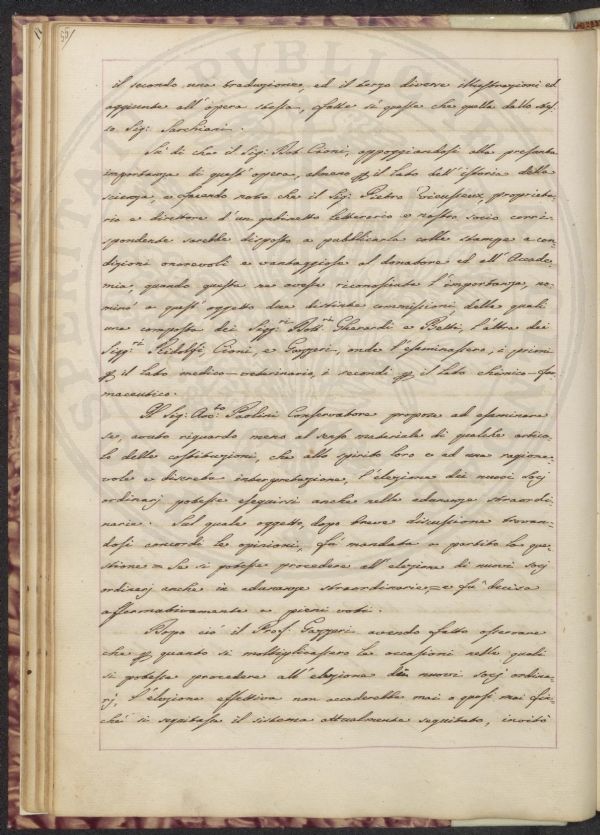 56
il secondo una traduzione, ed il terzo diverse illustrazioni ed
aggiunte all'opera stessa, fatte sì queste che quella dallo stes-
so Sig: Sarchiani.
Su di che il Sig: Dot. Cioni, appoggiandosi alla presunta
importanza di quest'opera, almeno p il lato dell'istoria della
scienza, e facendo noto che il Sig: Pietro Vieusseux, proprieta-
rio e direttore d'un gabinetto letterario e nostro socio corri-
spondente sarebbe disposto a pubblicarla colle stampe a con-
dizioni onorevoli e vantaggiose al donatore ed all'Accade-
mia, quando questa ne avesse riconosciuta l'importanza, no-
minò a quest'oggetto due distinte commissioni, delle quali
una composta dei Sigg:ri Dott:ri Gherardi e Betti, l'altra dei
Sigg:ri Ridolfi, Cioni, e Gazzeri, onde l'esaminassero, i primi
p il lato medico-veterinario, i secondi p il lato chimico-far-
maceutico.
Il Sig: Avv:to Paolini Conservatore propose ad esaminare
se, avuto riguardo meno al senso materiale di qualche artico-
lo delle costituzioni, che allo spirito loro e ad una ragione-
vole e discreta interpretazione, l'elezione dei nuovi socj
ordinarj potesse eseguirsi anche nelle adunanze straordi-
narie. Sul quale oggetto, dopo breve discussione trovan-
dosi concordi le opinioni, fù mandata a partito la que-
stione = Se si potesse procedere all'elezione di nuovi socj
ordinarj anche in adunanze straordinarie, = e fù decisa
affermativamente a pieni voti.
Dopo ciò il Prof. Gazzeri avendo fatto osservare
che p quanto si moltiplicassero le occasioni nelle quali
si potesse procedere all'elezione di nuovi socj ordina-
rj, l'elezione effettiva non accaderebbe mai o quasi mai fin-
chè si seguitasse il sistema attualmente seguitato, invitò
PVBLIC